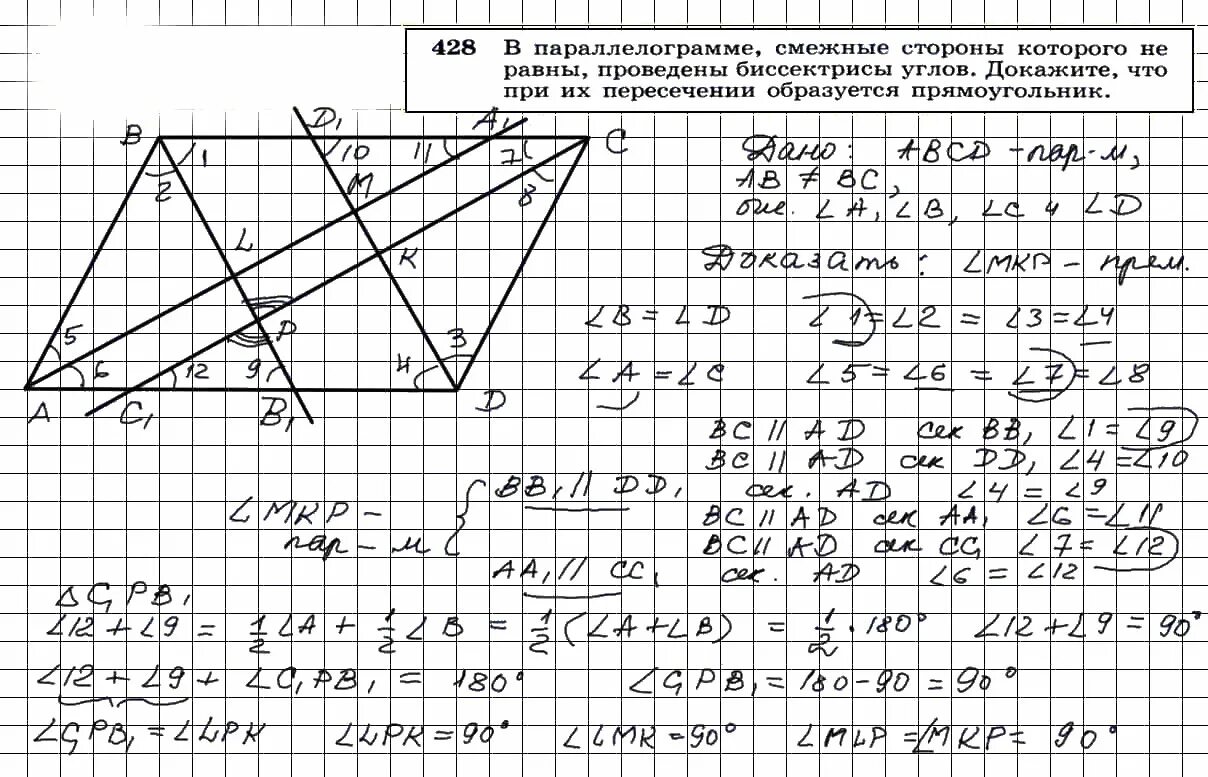 428 В параллелограмме, смежные стороны которого не
равны, проведены биссектрисы углов. Докажите, что
при их пересечении образуется прямоугольник.
D₁ A₁
B 1 10 11 7 C
2 M 8
L K
5 P 3
6 12 9 4
A C₁ B₁ D
Дано: ABCD - пар-м,
AB ≠ BC,
бис. ∠A, ∠B, ∠C и ∠D
Доказать: LMKP - прям.
∠B = ∠D ∠1 = ∠2 = ∠3 = ∠4
∠A = ∠C ∠5 = ∠6 = ∠7 = ∠8
BC || AD сек BB₁ ∠1 = ∠9
BC || AD сек DD₁ ∠4 = ∠10
BB₁ || DD₁ сек. AD ∠4 = ∠9
LMKP - пар-м
BC || AD сек AA₁ ∠6 = ∠11
BC || AD сек CC₁ ∠7 = ∠12
AA₁ || CC₁ сек. AD ∠6 = ∠12
△C₁PB₁
∠12 + ∠9 = 1/2 ∠A + 1/2 ∠B = 1/2 (∠A + ∠B) = 1/2 · 180° ∠12 + ∠9 = 90°
∠12 + ∠9 + ∠C₁PB₁ = 180° ∠C₁PB₁ = 180 - 90 = 90°
∠C₁PB₁ = ∠LPK ∠LPK = 90° ∠LMK = 90° ∠MLP = ∠MKP = 90°